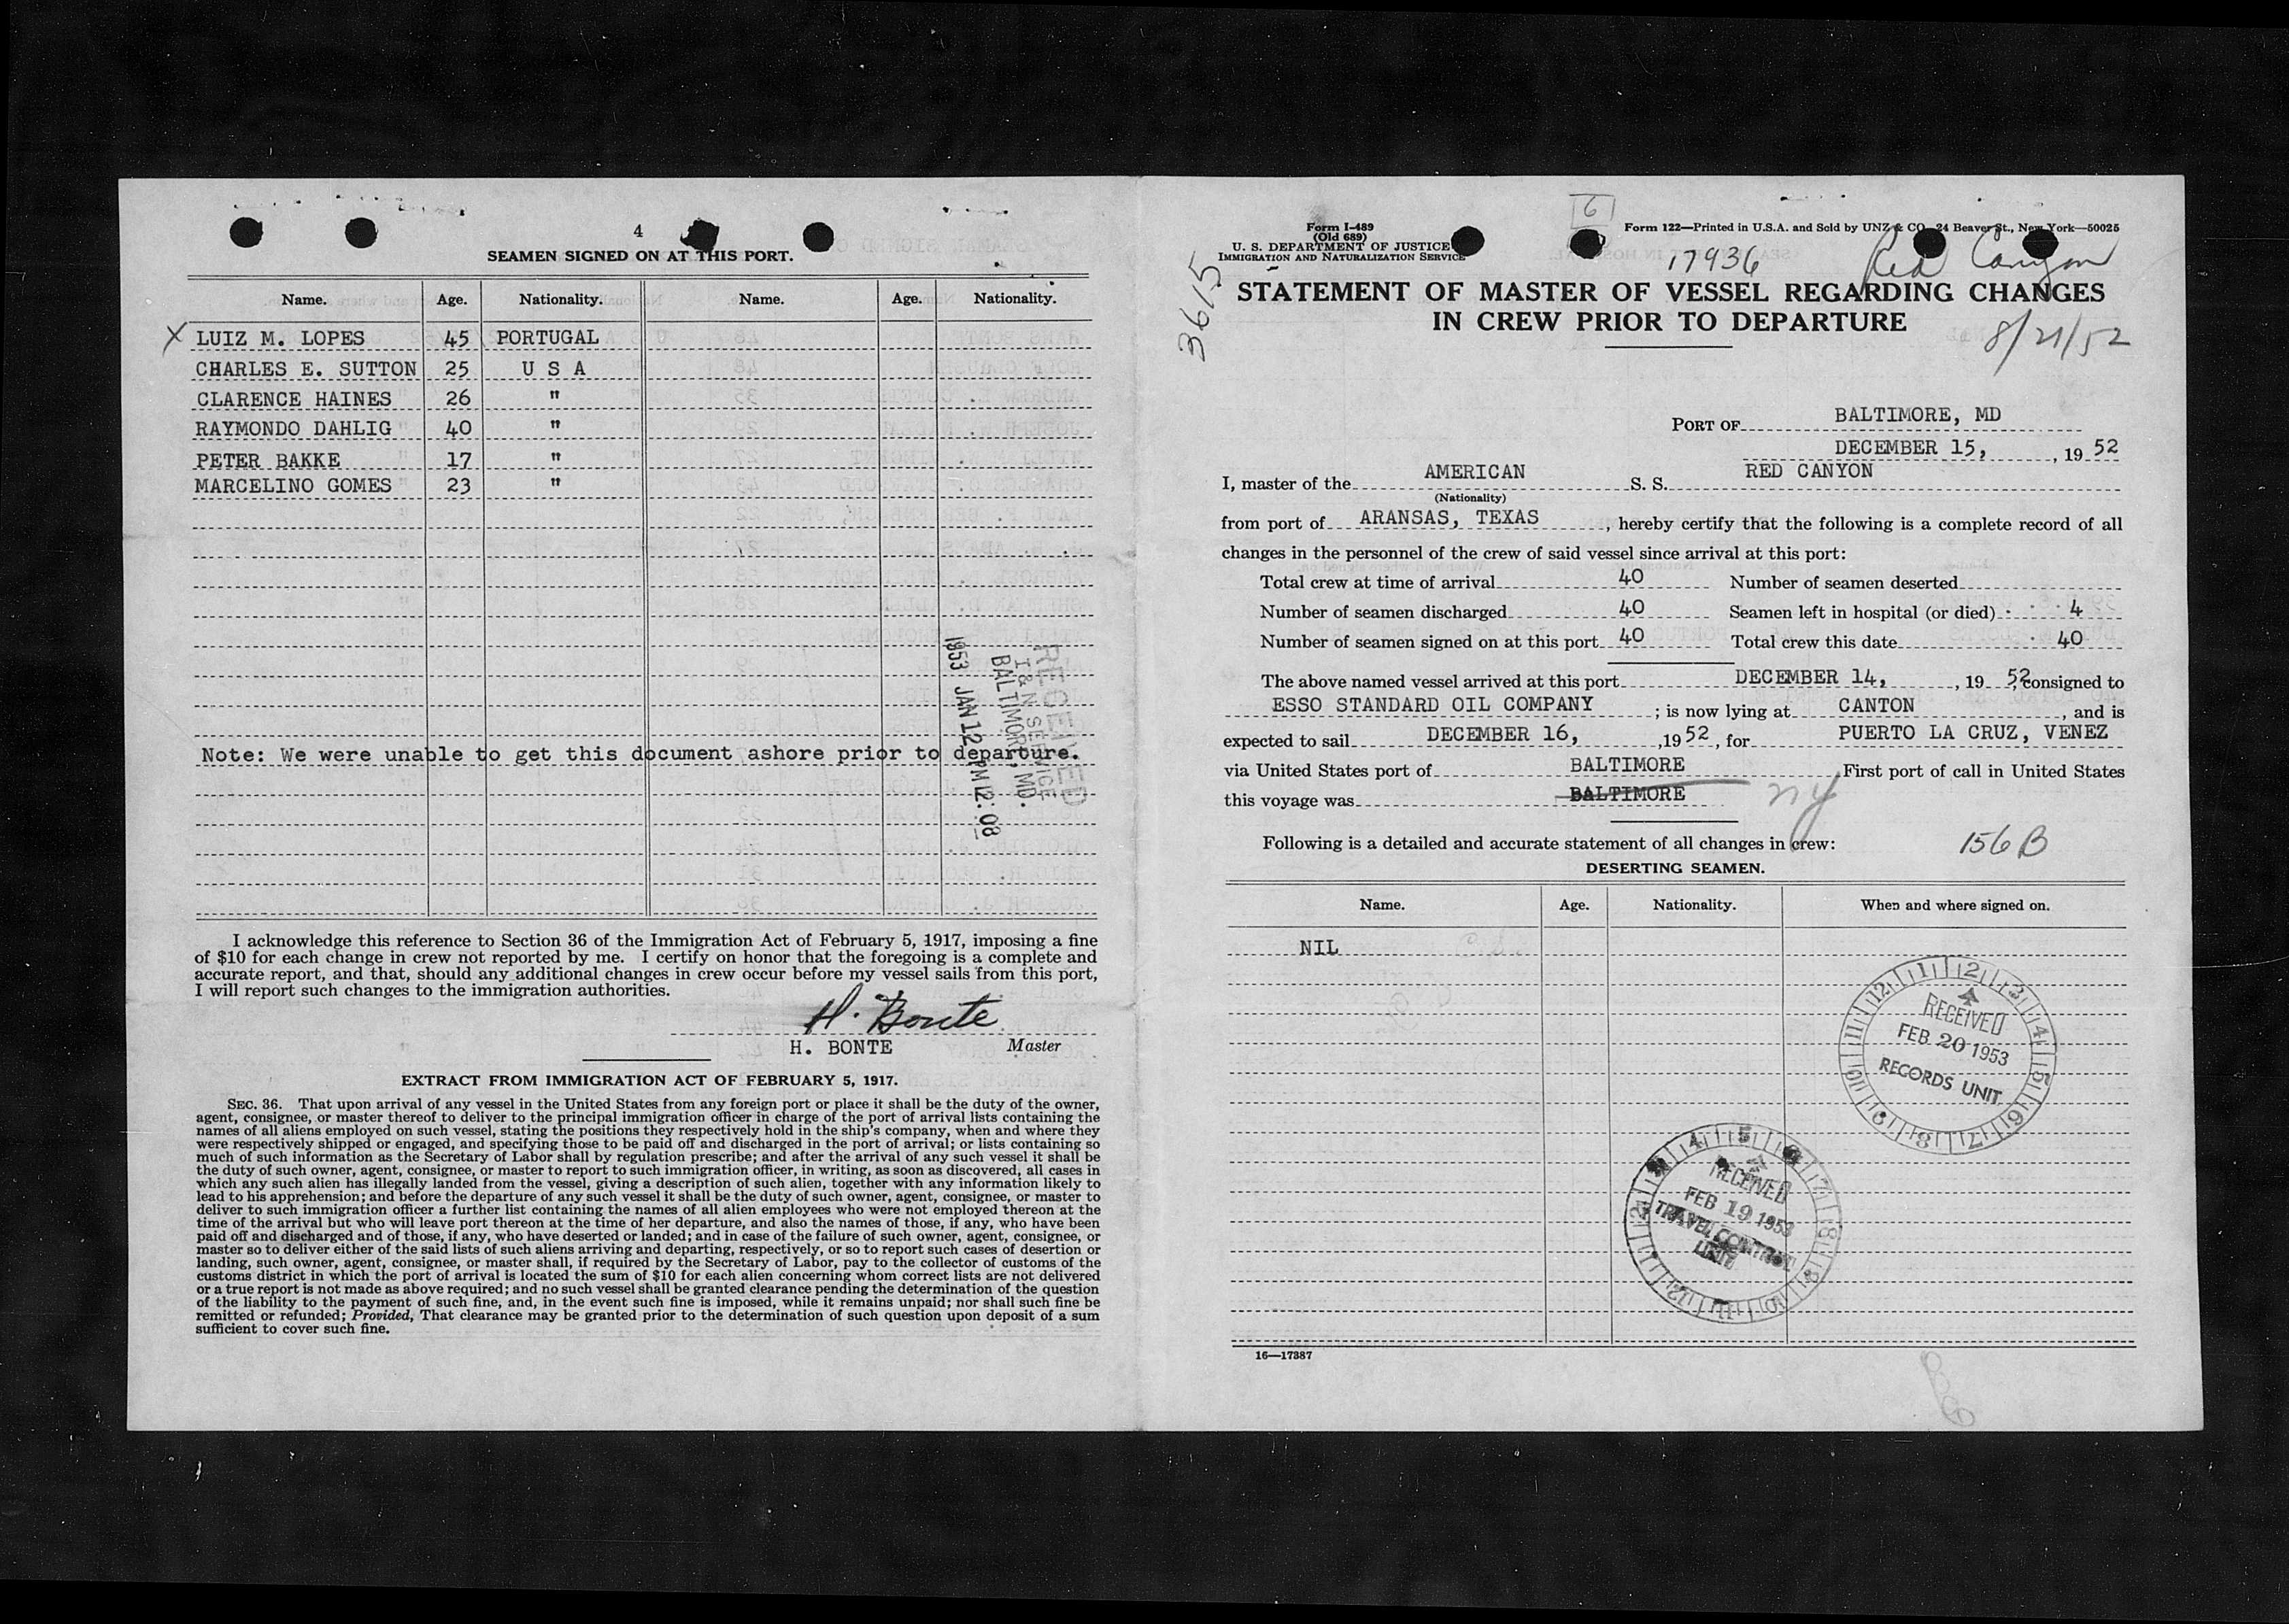 4
SEAMEN SIGNED ON AT THIS PORT.
Name. Age. Nationality. Name. Age. Nationality.
X LUIZ M. LOPES 45 PORTUGAL
CHARLES E. SUTTON 25 U S A
CLARENCE HAINES 26 "
RAYMONDO DAHLIG 40 "
PETER BAKKE 17 "
MARCELINO GOMES 23 "
RECEIVED
I & N SERVICE
BALTIMORE, MD.
1953 JAN 12 PM 12:08
Note: We were unable to get this document ashore prior to departure.
I acknowledge this reference to Section 36 of the Immigration Act of February 5, 1917, imposing a fine
of $10 for each change in crew not reported by me. I certify on honor that the foregoing is a complete and
accurate report, and that, should any additional changes in crew occur before my vessel sails from this port,
I will report such changes to the immigration authorities.
H. Bonte
H. BONTE Master
EXTRACT FROM IMMIGRATION ACT OF FEBRUARY 5, 1917.
SEC. 36. That upon arrival of any vessel in the United States from any foreign port or place it shall be the duty of the owner,
agent, consignee, or master thereof to deliver to the principal immigration officer in charge of the port of arrival lists containing the
names of all aliens employed on such vessel, stating the positions they respectively hold in the ship's company, when and where they
were respectively shipped or engaged, and specifying those to be paid off and discharged in the port of arrival; or lists containing so
much of such information as the Secretary of Labor shall by regulation prescribe; and after the arrival of any such vessel it shall be
the duty of such owner, agent, consignee, or master to report to such immigration officer, in writing, as soon as discovered, all cases in
which any such alien has illegally landed from the vessel, giving a description of such alien, together with any information likely to
lead to his apprehension; and before the departure of any such vessel it shall be the duty of such owner, agent, consignee, or master to
deliver to such immigration officer a further list containing the names of all alien employees who were not employed thereon at the
time of the arrival but who will leave port thereon at the time of her departure, and also the names of those, if any, who have been
paid off and discharged and of those, if any, who have deserted or landed; and in case of the failure of such owner, agent, consignee, or
master so to deliver either of the said lists of such aliens arriving and departing, respectively, or so to report such cases of desertion or
landing, such owner, agent, consignee, or master shall, if required by the Secretary of Labor, pay to the collector of customs of the
customs district in which the port of arrival is located the sum of $10 for each alien concerning whom correct lists are not delivered
or a true report is not made as above required; and no such vessel shall be granted clearance pending the determination of the question
of the liability to the payment of such fine, and, in the event such fine is imposed, while it remains unpaid; nor shall such fine be
remitted or refunded; Provided, That clearance may be granted prior to the determination of such question upon deposit of a sum
sufficient to cover such fine.
6
3615
Form I-489
(Old 689)
U. S. DEPARTMENT OF JUSTICE
IMMIGRATION AND NATURALIZATION SERVICE
Form 122—Printed in U.S.A. and Sold by UNZ & CO., 24 Beaver St., New York—50025
17936 Red Canyon
STATEMENT OF MASTER OF VESSEL REGARDING CHANGES
IN CREW PRIOR TO DEPARTURE
8/21/52
PORT OF BALTIMORE, MD
DECEMBER 15, , 19 52
I, master of the AMERICAN S. S. RED CANYON
(Nationality)
from port of ARANSAS, TEXAS , hereby certify that the following is a complete record of all
changes in the personnel of the crew of said vessel since arrival at this port:
Total crew at time of arrival 40 Number of seamen deserted
Number of seamen discharged 40 Seamen left in hospital (or died) 4
Number of seamen signed on at this port 40 Total crew this date 40
The above named vessel arrived at this port DECEMBER 14, , 19 52 consigned to
ESSO STANDARD OIL COMPANY ; is now lying at CANTON , and is
expected to sail DECEMBER 16, ,19 52 , for PUERTO LA CRUZ, VENEZ
via United States port of BALTIMORE First port of call in United States
this voyage was BALTIMORE ny
Following is a detailed and accurate statement of all changes in crew: 156 B
DESERTING SEAMEN.
Name. Age. Nationality. When and where signed on.
NIL
1 2 3 4 5 6 7 8 9 10 11 12
RECEIVED
FEB 20 1953
RECORDS UNIT
RECEIVED
FEB 19 1953
TRAVEL CONTROL
UNIT
16—17387